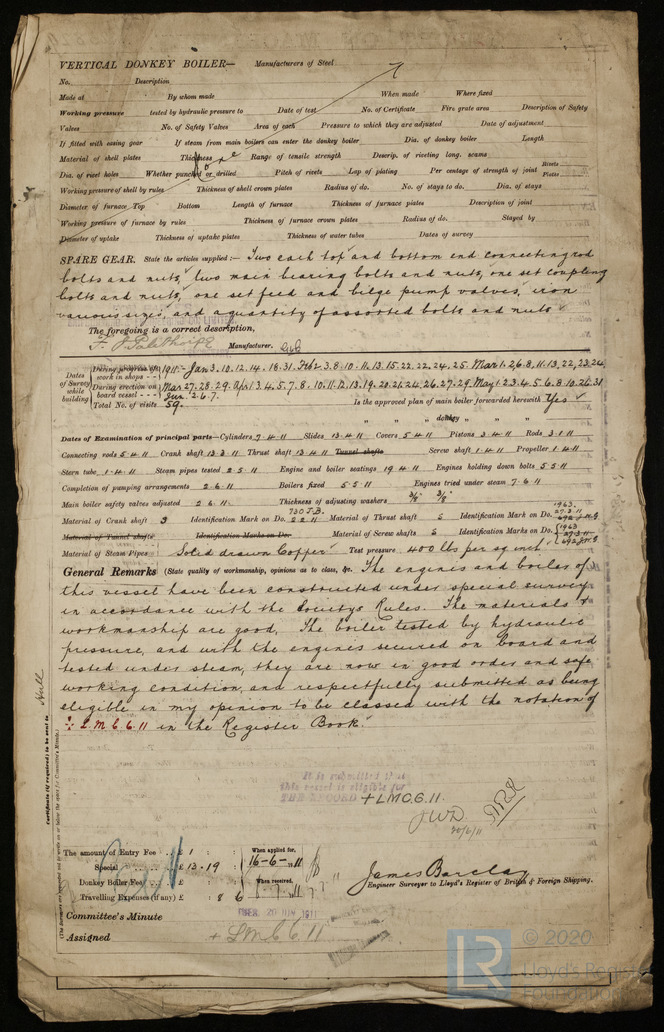 VERTICAL DONKEY BOILER— Manufacturers of Steel
No. Description
Made at By whom made When made Where fixed
Working pressure tested by hydraulic pressure to Date of test No. of Certificate Fire grate area Description of Safety
Valves No. of Safety Valves Area of each Pressure to which they are adjusted Date of adjustment
If fitted with easing gear If steam from main boilers can enter the donkey boiler Dia. of donkey boiler Length
Material of shell plates Thickness Range of tensile strength Descrip. of riveting long. seams
Dia. of rivet holes Whether punched or drilled Pitch of rivets Lap of plating Per centage of strength of joint Rivets Plates
Working pressure of shell by rules Thickness of shell crown plates Radius of do. No. of stays to do. Dia. of stays
Diameter of furnace Top Bottom Length of furnace Thickness of furnace plates Description of joint
Working pressure of furnace by rules Thickness of furnace crown plates Radius of do. Stayed by
Diameter of uptake Thickness of uptake plates Thickness of water tubes Dates of survey
SPARE GEAR. State the articles supplied:— Two each top and bottom end connecting rod
bolts and nuts, two main bearing bolts and nuts, one set coupling
bolts and nuts, one set feed and bilge pump valves, iron
various sizes, and a quantity of assorted bolts and nuts
The foregoing is a correct description,
Manufacturer.
Dates of Survey while building
During progress of work in shops - - 1911:- Jan 3.10.12.14.18.31. Feb 2.3.8.10.11.13.15.22.22.24.25. Mar 1.2.6.8.11.13.22.23.24.
During erection on board vessel - - - Mar 27.28.29. Apr 1.3.4.5.7.8.10.11.12.13.19.20.21.24.26.27.29. May 1.2.3.4.5.6.8.10.26.31
Jun. 2.6.7.
Total No. of visits 59. Is the approved plan of main boiler forwarded herewith Yes
" " donkey " " "
Dates of Examination of principal parts—Cylinders 7.4.11 Slides 13.4.11 Covers 5.4.11 Pistons 3.4.11 Rods 3.1.11
Connecting rods 5.4.11 Crank shaft 13.3.11 Thrust shaft 13.4.11 Tunnel shafts Screw shaft 1.4.11 Propeller 1.4.11
Stern tube 1.4.11 Steam pipes tested 2.5.11 Engine and boiler seatings 19.4.11 Engines holding down bolts 5.5.11
Completion of pumping arrangements 2.6.11 Boilers fixed 5.5.11 Engines tried under steam 7.6.11
Main boiler safety valves adjusted 2.6.11 Thickness of adjusting washers 3/8 3/8
Material of Crank shaft S Identification Mark on Do. 730 J.B. 2.2.11 Material of Thrust shaft S Identification Mark on Do. 1963. 27.3.11
Material of Tunnel shafts Identification Marks on Do. Material of Screw shafts S Identification Marks on Do. 1963 27.3.11
Material of Steam Pipes Solid drawn Copper Test pressure 400 lbs per sq inch
General Remarks (State quality of workmanship, opinions as to class, &c. The engines and boiler of
this vessel have been constructed under special survey
in accordance with the Societys Rules. The materials &
workmanship are good, The boiler tested by hydraulic
pressure, and with the engines secured on board and
tested under steam, they are now in good order and safe
working condition, and respectfully submitted as being
eligible in my opinion to be classed with the notation of
L.M.C. 6.11 in the Register Book.
Certificate (if required) to be sent to Hull
It is submitted that
this vessel is eligible for
THE RECORD + LMC. 6.11.
JWD
20/6/11
The amount of Entry Fee . . £ 1 : : When applied for,
Special . . . £ 13 . 19 : 16-6-11
Donkey Boiler Fee . . . £ : : When received,
Travelling Expenses (if any) £ : 8 6 7 11
James Barclay
Engineer Surveyor to Lloyd's Register of British & Foreign Shipping.
Committee's Minute TUES. 20 JUN 1911
Assigned + LMC 6.11
LR © 2020
Lloyd's Register
Foundation